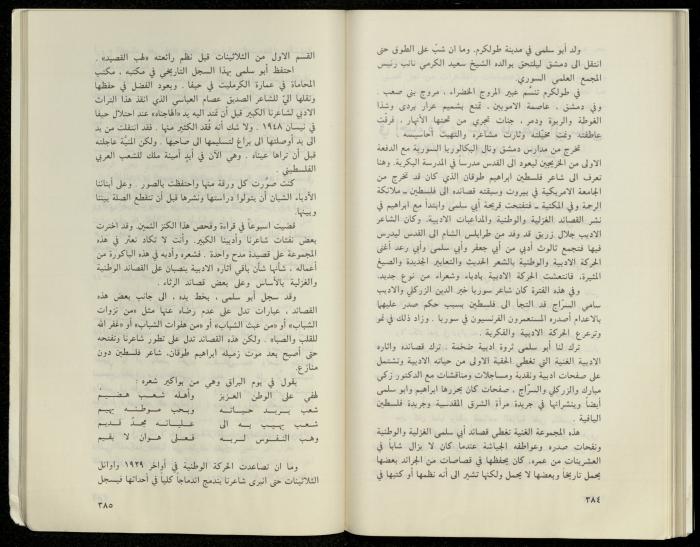 ولد أبو سلمى في مدينة طولكرم. وما ان شبّ على الطوق حتى
انتقل الى دمشق ليلتحق بوالده الشيخ سعيد الكرمي نائب رئيس
المجمع العلمي السوري.
في طولكرم تنسّم عبير المروج الخضراء، مروج بني صعب.
وفي دمشق، عاصمة الامويين، تمتع بشميم عرار بردى وشذا
الغوطة والربوة ودمر، جنات تجري من تحتها الأنهار، فرقّت
عاطفته ونمت مخيلته وثارت مشاعره والتهبت أحاسيسه.
تخرج من مدارس دمشق ونال البكالوريا السورية مع الدفعة
الاولى من الخريجين ليعود الى القدس مدرساً في المدرسة البكرية. وهنا
تعرف الى شاعر فلسطين ابراهيم طوقان الذي كان قد تخرج من
الجامعة الامريكية في بيروت وسبقته قصائده الى فلسطين ـ ملائكة
الرحمة وفي المكتبة ـ فتفتحت قريحة أبي سلمى وابتدأ مع ابراهيم في
نشر القصائد الغزلية والوطنية والمداعبات الادبية. وكان الشاعر
الاديب جلال زريق قد وفد من طرابلس الشام الى القدس ليدرس
فيها فتجمع ثالوث أدبي من أبي جعفر وأبي سلمى وأبي رعد أغنى
الحركة الادبية والوطنية بالشعر الحديث والتعابير الجديدة والصيغ
المثيرة. فانتعشت الحركة الادبية بادباء وشعراء من نوع جديد.
وفي هذه الفترة كان شاعر سوريا خير الدين الزركلي والاديب
سامي السرّاج قد التجأ الى فلسطين بسبب حكم صدر عليهما
بالاعدام أصدره المستعمرون الفرنسيون في سوريا. وزاد ذلك في نمو
وترعرع الحركة الادبية والفكرية.
ترك لنا أبو سلمى ثروة ادبية ضخمة. ترك قصائده وآثاره
الادبية الغنية التي تغطي الحقبة الاولى من حياته الادبية وتشتمل
على صفحات ادبية ونقدية ومساجلات ومناقشات مع الدكتور زكي
مبارك والزركلي والسرّاج، صفحات كان يحررها ابراهيم وابو سلمى
أيضاً وينشرانها في جريدة مرآة الشرق المقدسية وجريدة فلسطين
اليافية.
هذه المجموعة الغنية تغطي قصائد أبي سلمى الغزلية والوطنية
ونفحات صدره وعواطفه الجياشة عندما كان لا يزال شاباً في
العشرينات من عمره. كان يحفظها في قصاصات من الجرائد بعضها
يحمل تاريخاً وبعضها لا يحمل ولكنها تشير الى أنه نظمها أو كتبها في
٣٨٤
القسم الاول من الثلاثينات قبل نظم رائعته «لهب القصيد».
احتفظ أبو سلمى بهذا السجل التاريخي في مكتبه، مكتب
المحاماة في عمارة الكرمليت في حيفا. ويعود الفضل في حفظها
ونقلها الي للشاعر الصديق عصام العباسي الذي انقذ هذا التراث
الادبي لشاعرنا الكبير قبل أن تمتد اليه يد «الهاجناه» عند احتلال حيفا
في نيسان ١٩٤٨. ولا شك أنه فُقد الكثير منها. فقد انتقلت من يد
الى يد أوصلتها الى براغ لتسليمها الى صاحبها. ولكن المنيّة عاجلته
قبل أن تراها عيناه. وهي الآن في أيدٍ أمينة ملك للشعب العربي
الفلسطيني.
كنت صوّرت كل ورقة منها واحتفظت بالصور. وعلى أبنائنا
الأدباء الشبان أن يتولوا دراستها ونشرها قبل أن تنقطع الصلة بيننا
وبينها.
قضيت اسبوعاً في قراءة وفحص هذا الكنز الثمين. وقد اخترت
بعض نفثات شاعرنا وأديبنا الكبير. وأنت لا تكاد تعثر في هذه
المجموعة على قصيدة مدح واحدة. فشعره وأدبه في هذه الباكورة من
أعماله، شأنها شأن باقي آثاره الادبية ينصبان على القصائد الوطنية
والغزلية بالأساس وعلى بعض قصائد الرثاء.
وقد سجل أبو سلمى، بخط يده، الى جانب بعض هذه
القصائد، عبارات تدل على عدم رضاه عنها مثل «من نزوات
الشباب» أو «من عبث الشباب» أو «من هفوات الشباب» أو «غفر الله
للقلب والصبا». ولكن هذه القصائد تدل على تطور شاعرنا وتفتحه
حتى أصبح بعد موت زميله ابراهيم طوقان، شاعر فلسطين دون
منازع.
يقول في يوم البراق وهي من بواكير شعره:
لهفي على الوطن العزيز وأهله شعب هضيم
شعب يريد حياته ويحب موطنه يهيم
شعب يهيب به الى عليائه مجدٌ قديم
وهب النفوس لربه فعلى هوان لا يقيم
وما ان تصاعدت الحركة الوطنية في أواخر ١٩٢٩ وأوائل
الثلاثينات حتى انبرى شاعرنا يندمج اندماجاً كلياً في أحداثها فيسجل
٣٨٥